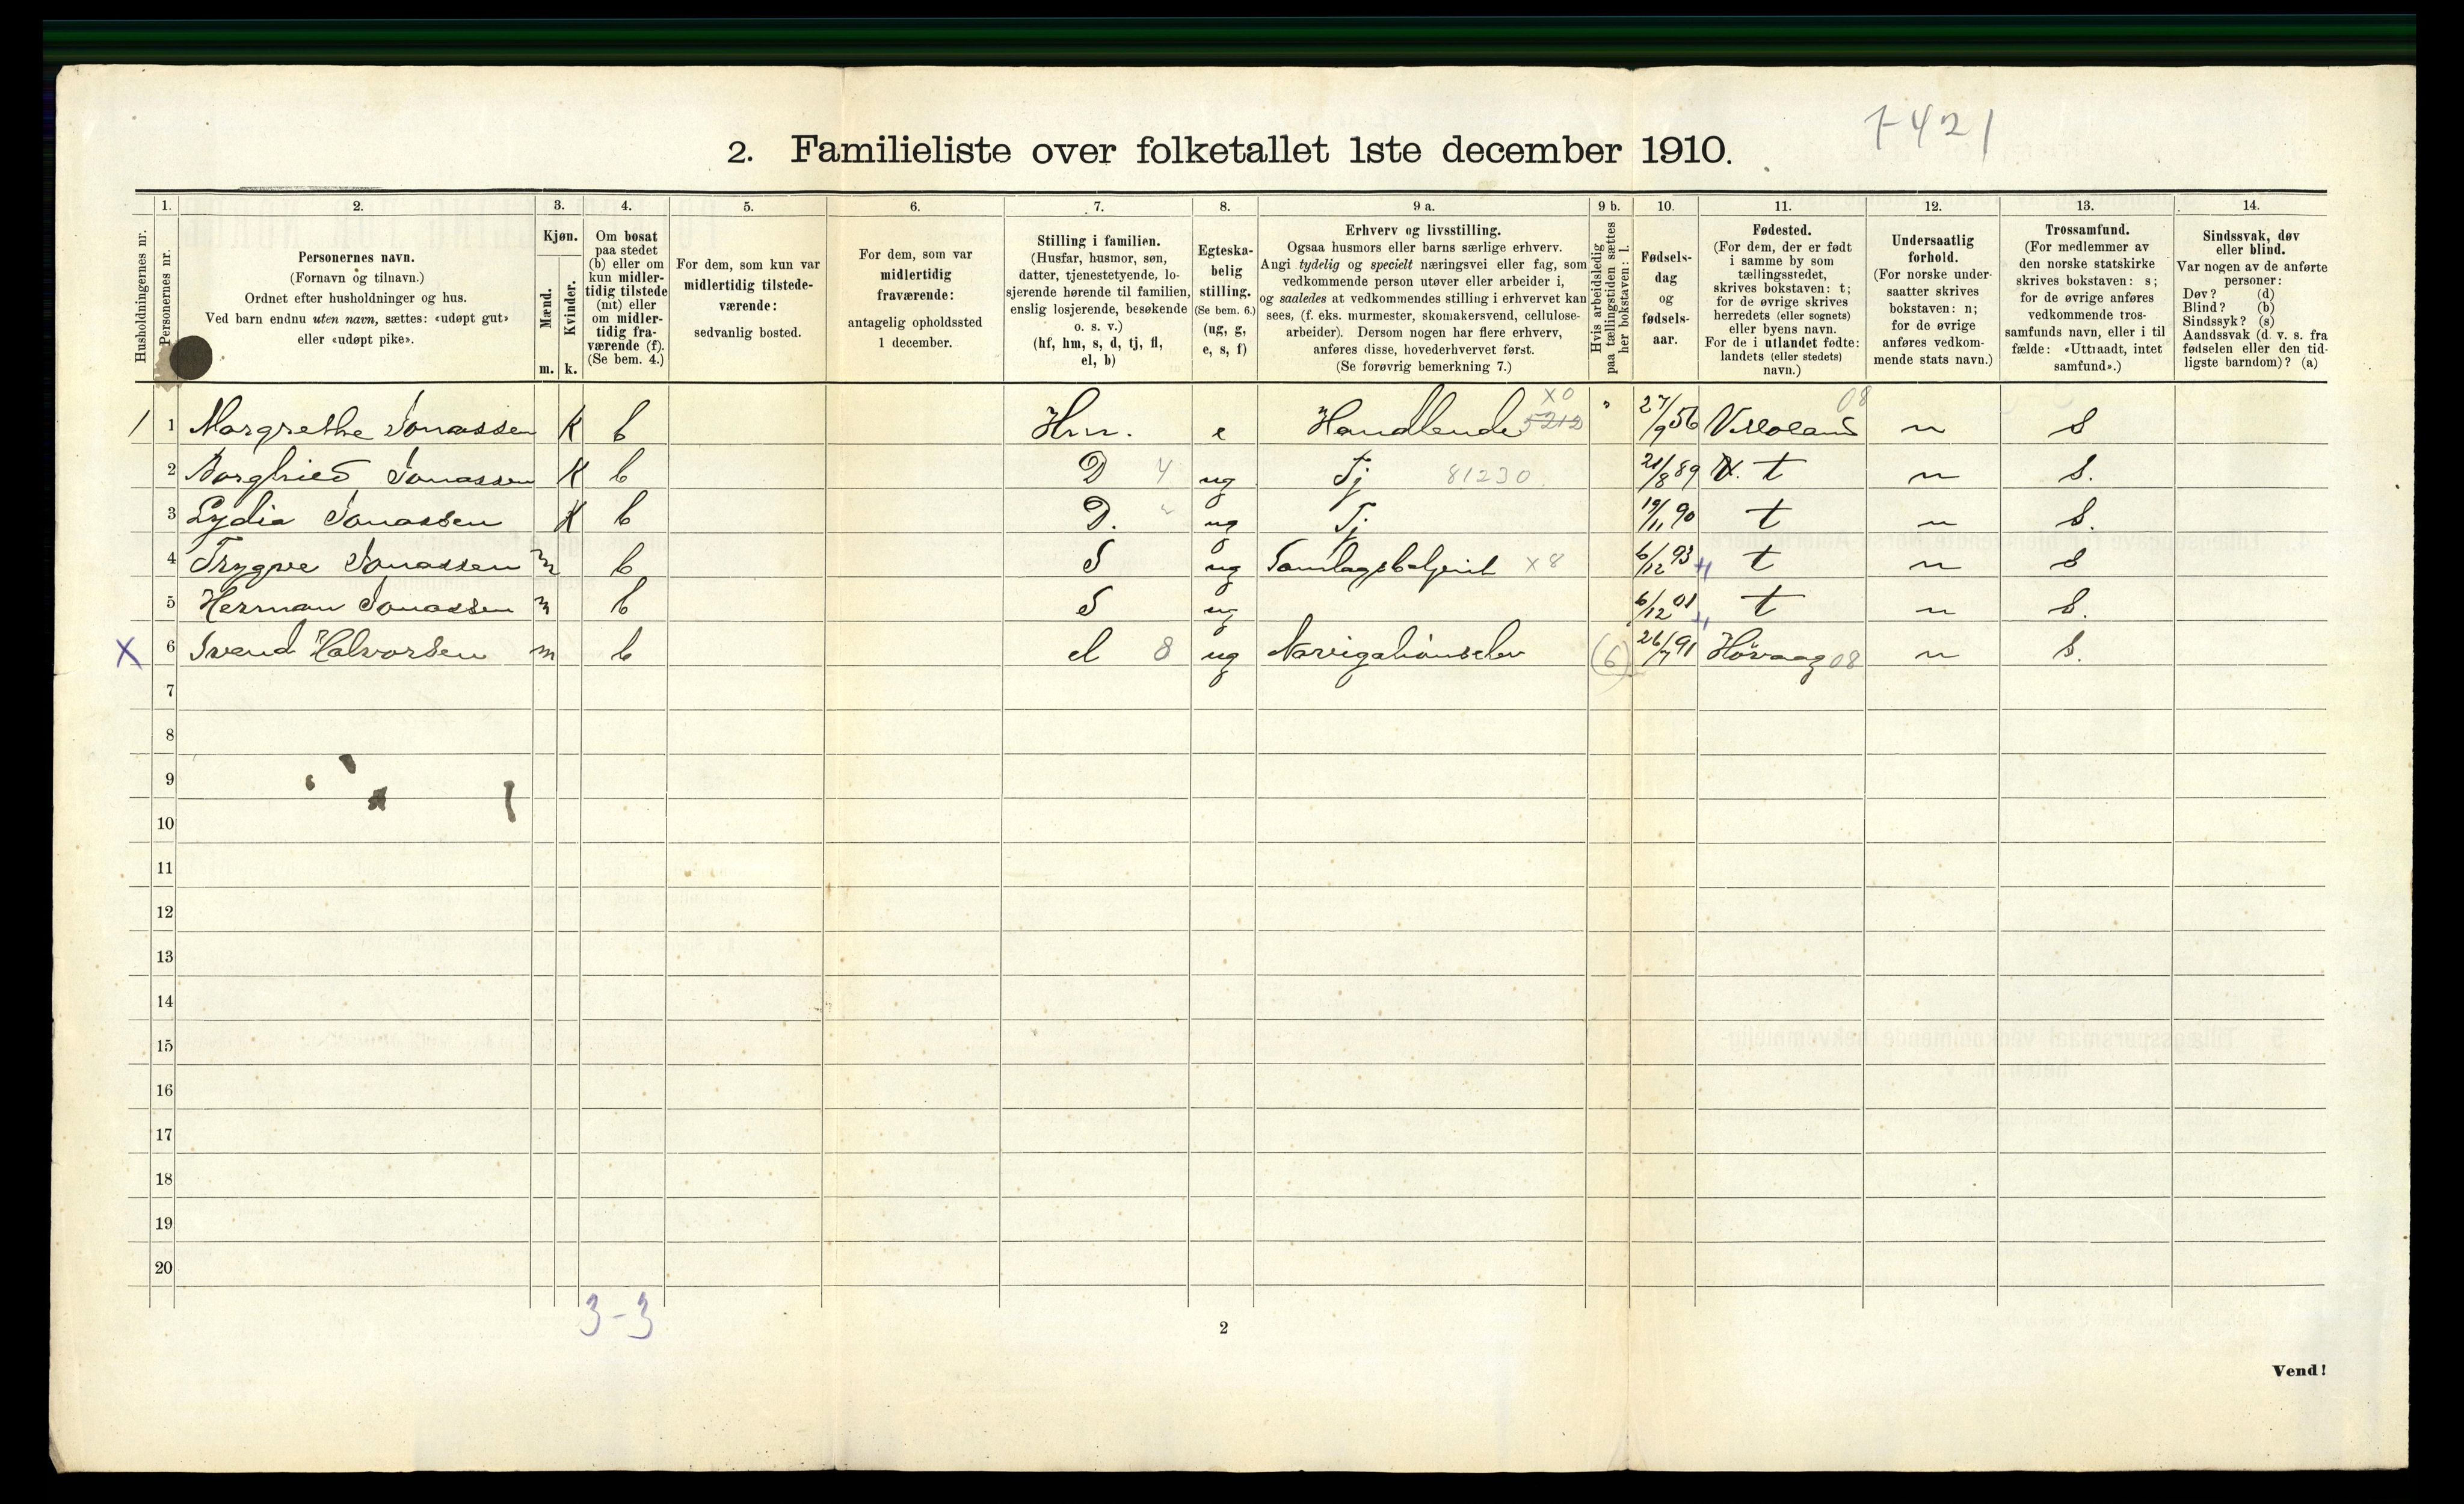 7421
2. Familieliste over folketallet 1ste december 1910.
1. 2. 3. 4. 5. 6. 7. 8. 9 a. 9 b. 10. 11. 12. 13. 14.
Husholdningernes nr.
Personernes nr.
Personernes navn.
(Fornavn og tilnavn.)
Ordnet efter husholdninger og hus.
Ved barn endnu uten navn, sættes: «udøpt gut»
eller «udøpt pike».
Kjøn.
Mænd.
Kvinder.
m. k.
Om bosat
paa stedet
(b) eller om
kun midler-
tidig tilstede
(mt) eller
om midler-
tidig fra-
værende (f).
(Se bem. 4.)
For dem, som kun var
midlertidig tilstede-
værende:
sedvanlig bosted.
For dem, som var
midlertidig
fraværende:
antagelig opholdssted
1 december.
Stilling i familien.
(Husfar, husmor, søn,
datter, tjenestetyende, lo-
sjerende hørende til familien,
enslig losjerende, besøkende
o. s. v.)
(hf, hm, s, d, tj, fl,
el, b)
Egteska-
belig
stilling.
(Se bem. 6.)
(ug, g,
e, s, f)
Erhverv og livsstilling.
Ogsaa husmors eller barns særlige erhverv.
Angi tydelig og specielt næringsvei eller fag, som
vedkommende person utøver eller arbeider i,
og saaledes at vedkommendes stilling i erhvervet kan
sees, (f. eks. murmester, skomakersvend, cellulose-
arbeider). Dersom nogen har flere erhverv,
anføres disse, hovederhvervet først.
(Se forøvrig bemerkning 7.)
Hvis arbeidsledig
paa tællingstiden sættes
her bokstaven: l.
Fødsels-
dag
og
fødsels-
aar.
Fødested.
(For dem, der er født
i samme by som
tællingsstedet,
skrives bokstaven: t;
for de øvrige skrives
herredets (eller sognets)
eller byens navn.
For de i utlandet fødte:
landets (eller stedets)
navn.)
Undersaatlig
forhold.
(For norske under-
saatter skrives
bokstaven: n;
for de øvrige
anføres vedkom-
mende stats navn.)
Trossamfund.
(For medlemmer av
den norske statskirke
skrives bokstaven: s;
for de øvrige anføres
vedkommende tros-
samfunds navn, eller i til
fælde: «Uttraadt, intet
samfund».)
Sindssvak, døv
eller blind.
Var nogen av de anførte
personer:
Døv? (d)
Blind? (b)
Sindssyk? (s)
Aandssvak (d. v. s. fra
fødselen eller den tid-
ligste barndom)? (a)
1 1 Margrethe Jonassen K b Hm. e Handlende 5212 x0 " 27/9 56 08 n s
2 Borghild Jonassen K b D 4 ug Tj 81230 21/8 89 t n s.
3 Lydia Jonassen K b D. " ug Tj 19/11 90 t n s.
4 Trygve Jonassen m b S ug Samlagsbetjent x8 6/12 93 t n s
5 Herman Jonassen m b S ug 6/12 01 t n s.
X 6 Svend Halvorsen m b el 8 ug Navigationselev (6) 26/7 91 Høvaag 08 n s.
7
8
9
10
11
12
13
14
15
16
17
18
19
20
3-3
2
Vend!